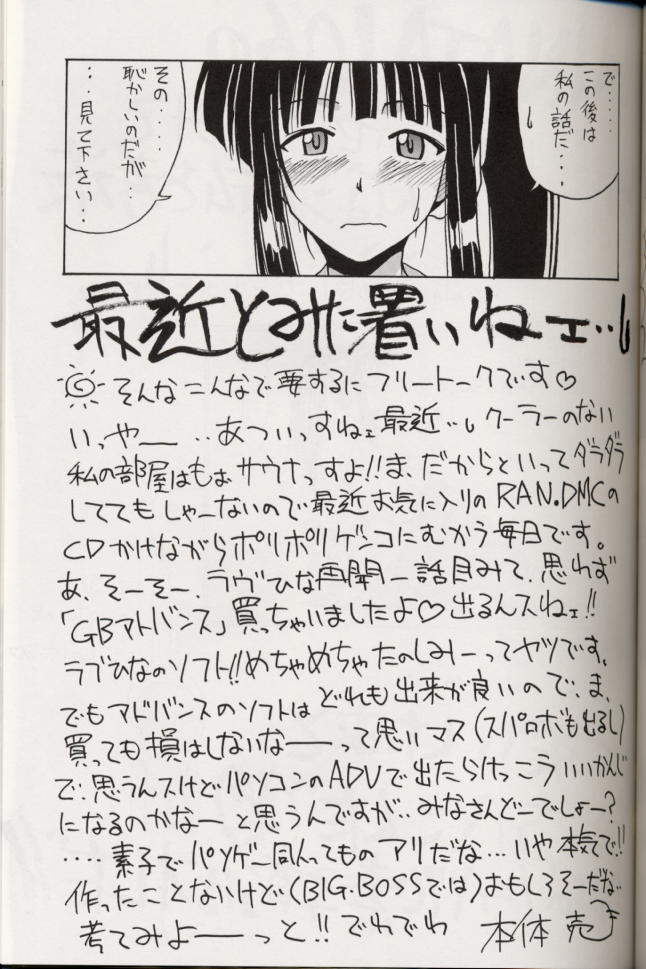 で‥‥
この後は
私の話だ・・・
その・・・・
恥かしいのだが‥
・・・見て下さい・・
最近とみに暑いねェ‥
そんなこんなで要するにフリートークです♡
いっやー ‥あついっすねェ最近‥クーラーのない
私の部屋はもぉサウナっすよ!!ま、だからといってダラダラ
しててもしゃーないので最近お気に入りのRAN.DMCの
CDかけながらポリポリゲンコにむかう毎日です。
あ、そーそー、ラヴひな再開一話目みて、思わず
「GBアドバンス」買っちゃいましたよ♡出るんスねェ!!
ラブひなのソフト!!めちゃめちゃたのしみーってヤツです。
でもアドバンスのソフトはどれも出来が良いので、ま、
買っても損はしないなーーって思いマス(スパロボも出るし)
で:思うんスけどパソコンのADVで出たらけっこういいかんじ
になるのかなーと思うんですが‥みなさんどーでしょー?
‥‥素子でパソゲー同人ってものアリだな…いや本気で!!
作ったことないけど(BIG.BOSSでは)おもしろそーだな
考てみよーーっと!!でわでわ 本体 売